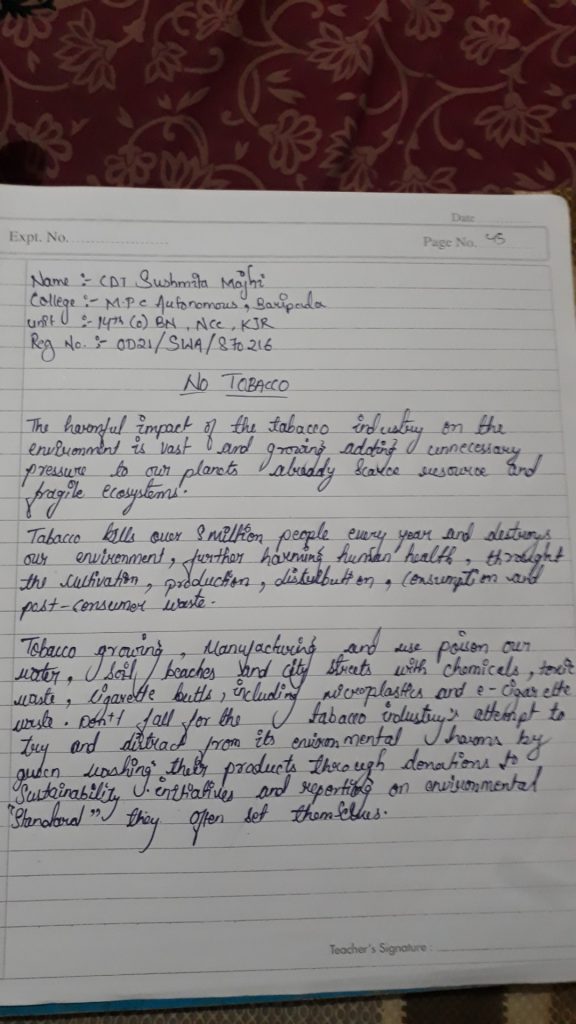 Date
Expt. No.
Page No. 45
Name :- CDT Sushmita Majhi
College :- M.P.C Autonomous, Baripada
Unit :- 14th (O) BN, NCC, KJR
Reg No. :- OD21/SWA/870216
NO TOBACCO
The harmful impact of the tabacco industry on the
environment is vast and growing adding unnecessary
pressure to our planets already scarce resource and
fragile ecosystems.
Tabacco kills over 8 million people every year and destroys
our environment, further harming human health, throught
the cultivation, production, distulbution, consumption and
post-consumer waste.
Tobacco growing, Manufacturing and use poison our
water, soil, beaches and city streets with chemicals, toxic
waste, cigarette butts, including microplastics and e-cigarette
waste. Don't fall for the tabacco industry's attempt to
try and distract from its environmental harms by
green washing their products through donations to
Sustainability initiatives and reporting on environmental
"Standard" they often set themselves.
Teacher's Signature :